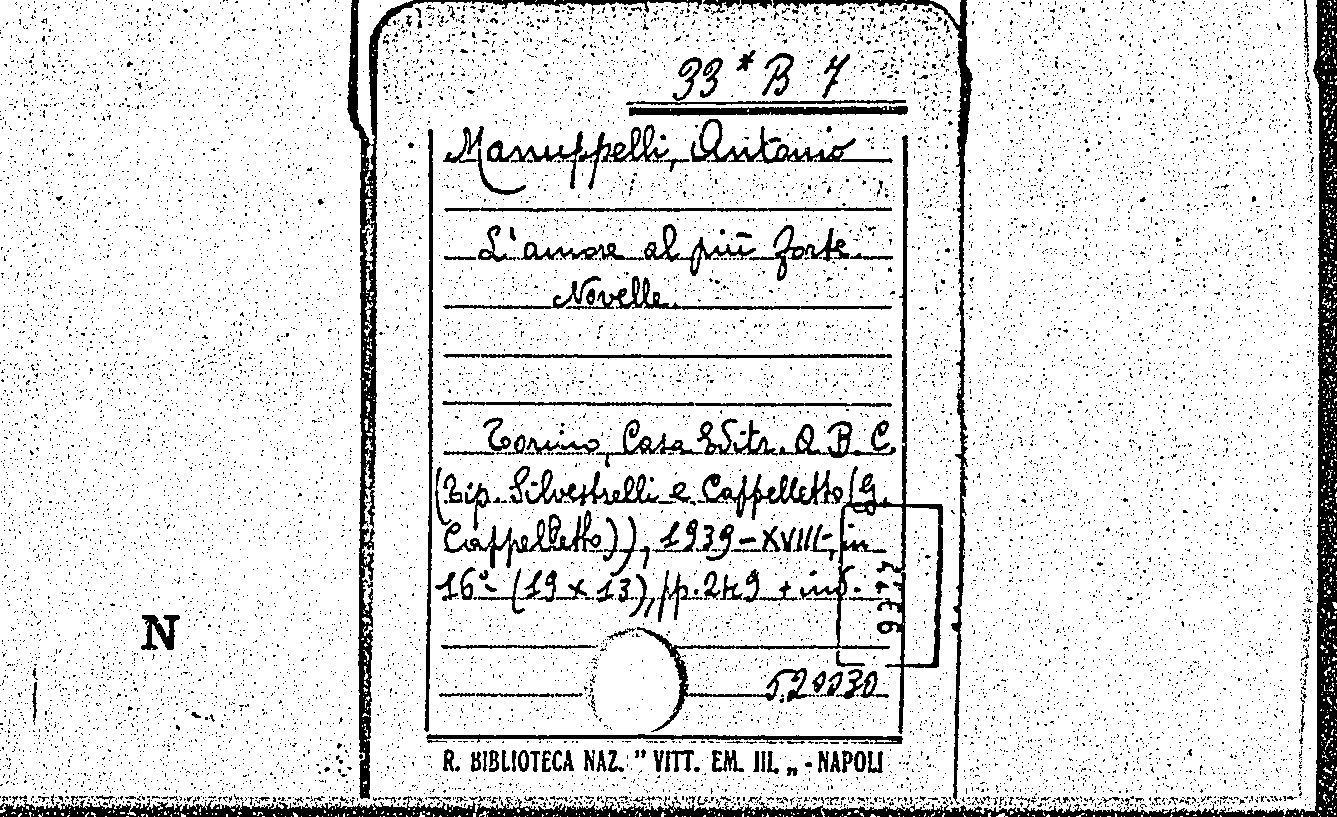 33 * B 7
Manuppelli, Antonio
L'amore al più forte.
Novelle.
Torino, Casa Editr. A. B. C.
(Tip. Silvestrelli e Cappelletto (G.
Cappelletto)), 1939-XVIII, in
16° (19 x 13), pp. 249 + ind.
N
R. BIBLIOTECA NAZ. " VITT. EM. III. „ - NAPOLI